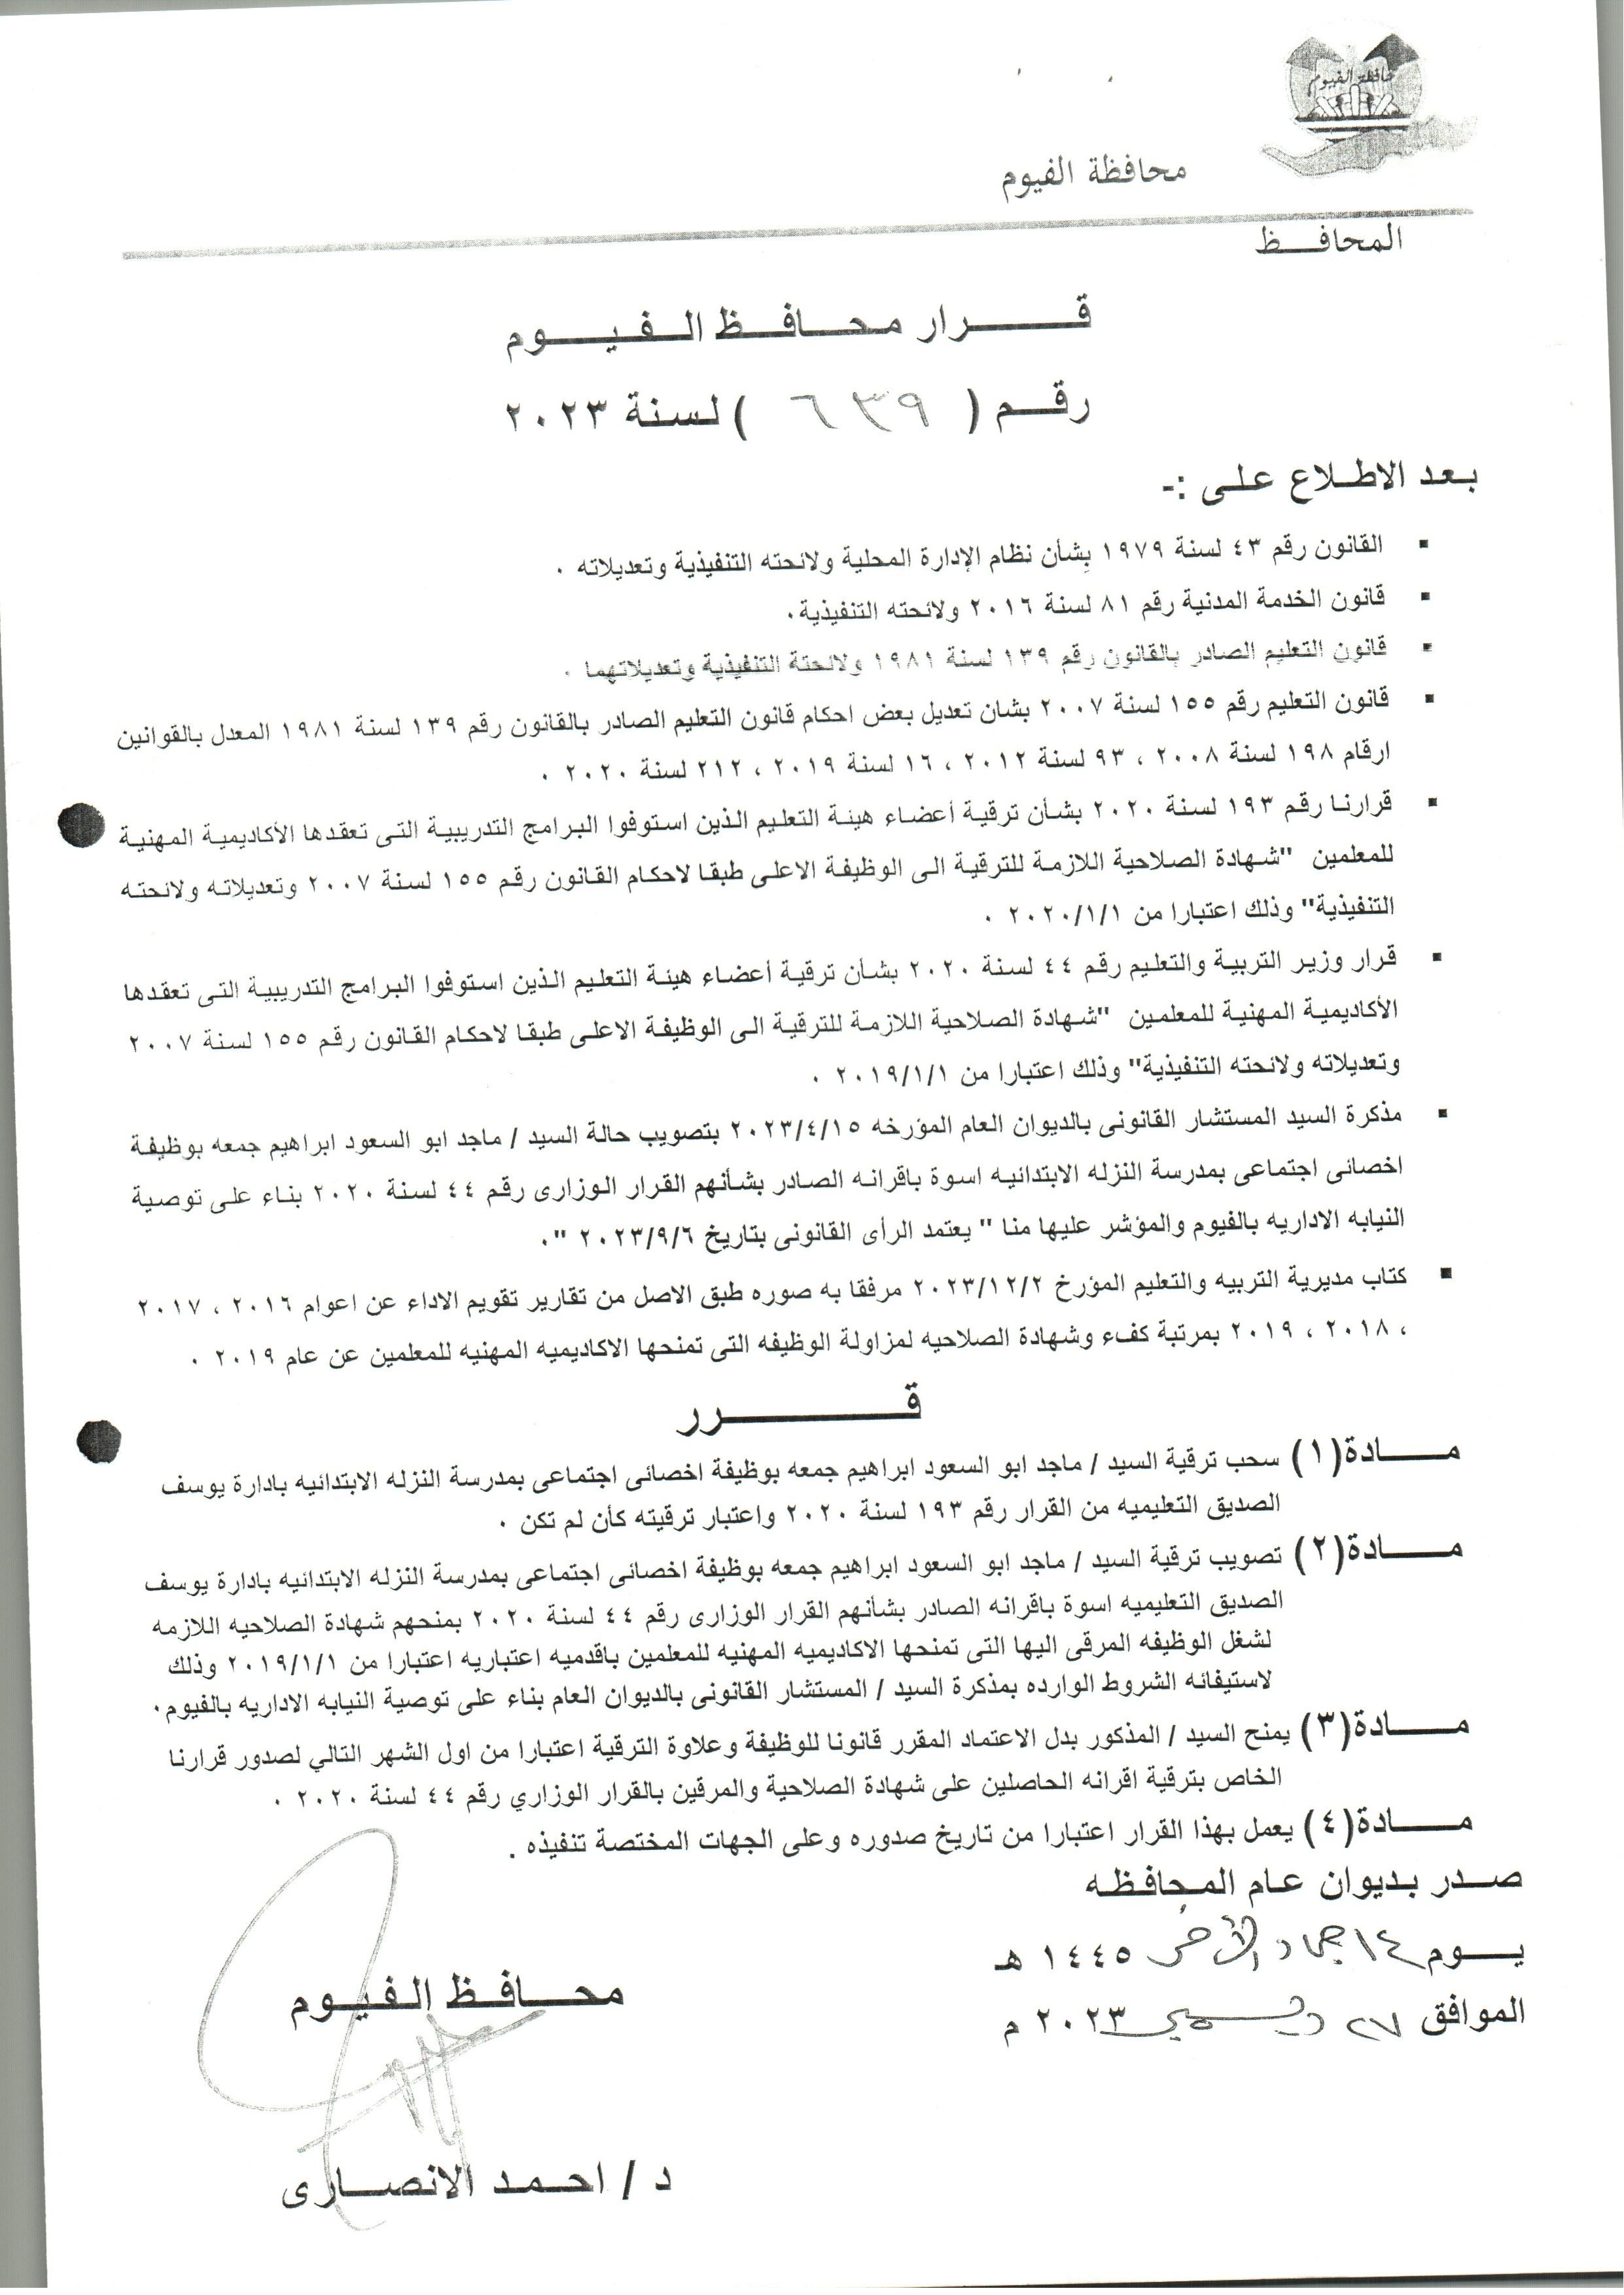 محافظة الفيوم
محافظة الفيوم
المحافــظ
قــــرار محــافــظ الــفــيــــوم
رقــم ( ٦٣٩ ) لسنة ٢٠٢٣
بعد الاطلاع على :-
▪ القانون رقم ٤٣ لسنة ١٩٧٩ بشأن نظام الإدارة المحلية ولائحته التنفيذية وتعديلاته ٠
▪ قانون الخدمة المدنية رقم ٨١ لسنة ٢٠١٦ ولائحته التنفيذية٠
▪ قانون التعليم الصادر بالقانون رقم ١٣٩ لسنة ١٩٨١ ولائحتة التنفيذية وتعديلاتهما ٠
▪ قانون التعليم رقم ١٥٥ لسنة ٢٠٠٧ بشان تعديل بعض احكام قانون التعليم الصادر بالقانون رقم ١٣٩ لسنة ١٩٨١ المعدل بالقوانين
ارقام ١٩٨ لسنة ٢٠٠٨ ، ٩٣ لسنة ٢٠١٢ ، ١٦ لسنة ٢٠١٩ ، ٢١٢ لسنة ٢٠٢٠ ٠
▪ قرارنا رقم ١٩٣ لسنة ٢٠٢٠ بشأن ترقية أعضاء هيئة التعليم الذين استوفوا البرامج التدريبية التى تعقدها الأكاديمية المهنية
للمعلمين "شهادة الصلاحية اللازمة للترقية الى الوظيفة الاعلى طبقا لاحكام القانون رقم ١٥٥ لسنة ٢٠٠٧ وتعديلاته ولائحته
التنفيذية" وذلك اعتبارا من ٢٠٢٠/١/١ ٠
▪ قرار وزير التربية والتعليم رقم ٤٤ لسنة ٢٠٢٠ بشأن ترقية أعضاء هيئة التعليم الذين استوفوا البرامج التدريبية التى تعقدها
الأكاديمية المهنية للمعلمين "شهادة الصلاحية اللازمة للترقية الى الوظيفة الاعلى طبقا لاحكام القانون رقم ١٥٥ لسنة ٢٠٠٧
وتعديلاته ولائحته التنفيذية" وذلك اعتبارا من ٢٠١٩/١/١ ٠
▪ مذكرة السيد المستشار القانونى بالديوان العام المؤرخه ٢٠٢٣/٤/١٥ بتصويب حالة السيد / ماجد ابو السعود ابراهيم جمعه بوظيفة
اخصائى اجتماعى بمدرسة النزله الابتدائيه اسوة باقرانه الصادر بشأنهم القرار الوزارى رقم ٤٤ لسنة ٢٠٢٠ بناء على توصية
النيابه الاداريه بالفيوم والمؤشر عليها منا " يعتمد الرأى القانونى بتاريخ ٢٠٢٣/٩/٦ "٠
▪ كتاب مديرية التربيه والتعليم المؤرخ ٢٠٢٣/١٢/٢ مرفقا به صوره طبق الاصل من تقارير تقويم الاداء عن اعوام ٢٠١٦ ، ٢٠١٧
، ٢٠١٨ ، ٢٠١٩ بمرتبة كفء وشهادة الصلاحيه لمزاولة الوظيفه التى تمنحها الاكاديميه المهنيه للمعلمين عن عام ٢٠١٩ ٠
قــــــــرر
مــــادة(١) سحب ترقية السيد / ماجد ابو السعود ابراهيم جمعه بوظيفة اخصائى اجتماعى بمدرسة النزله الابتدائيه بادارة يوسف
الصديق التعليميه من القرار رقم ١٩٣ لسنة ٢٠٢٠ واعتبار ترقيته كأن لم تكن ٠
مــــادة(٢) تصويب ترقية السيد / ماجد ابو السعود ابراهيم جمعه بوظيفة اخصائى اجتماعى بمدرسة النزله الابتدائيه بادارة يوسف
الصديق التعليميه اسوة باقرانه الصادر بشأنهم القرار الوزارى رقم ٤٤ لسنة ٢٠٢٠ بمنحهم شهادة الصلاحيه اللازمه
لشغل الوظيفه المرقى اليها التى تمنحها الاكاديميه المهنيه للمعلمين باقدميه اعتباريه اعتبارا من ٢٠١٩/١/١ وذلك
لاستيفائه الشروط الوارده بمذكرة السيد / المستشار القانونى بالديوان العام بناء على توصية النيابه الاداريه بالفيوم٠
مــــادة(٣) يمنح السيد / المذكور بدل الاعتماد المقرر قانونا للوظيفة وعلاوة الترقية اعتبارا من اول الشهر التالي لصدور قرارنا
الخاص بترقية اقرانه الحاصلين على شهادة الصلاحية والمرقين بالقرار الوزاري رقم ٤٤ لسنة ٢٠٢٠ ٠
مــــادة(٤) يعمل بهذا القرار اعتبارا من تاريخ صدوره وعلى الجهات المختصة تنفيذه .
صــدر بـديوان عـام المـحافـظـه
يــــوم ١٤ جماد الأخر ١٤٤٥ هـ
الموافق ٢٧ ديسمبر ٢٠٢٣ م
محــافــظ الـفـيـــوم
د / احـمـد الانصــارى